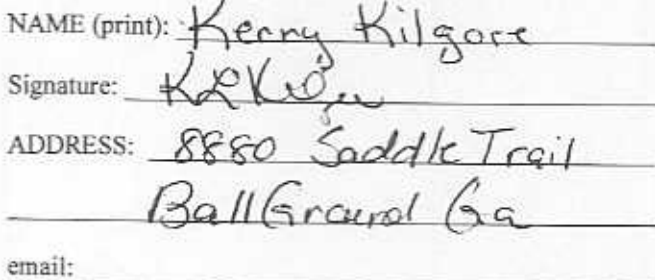 NAME (print): Kerry Kilgore
Signature:
ADDRESS: 8880 Saddle Trail
Ball Ground Ga
email: